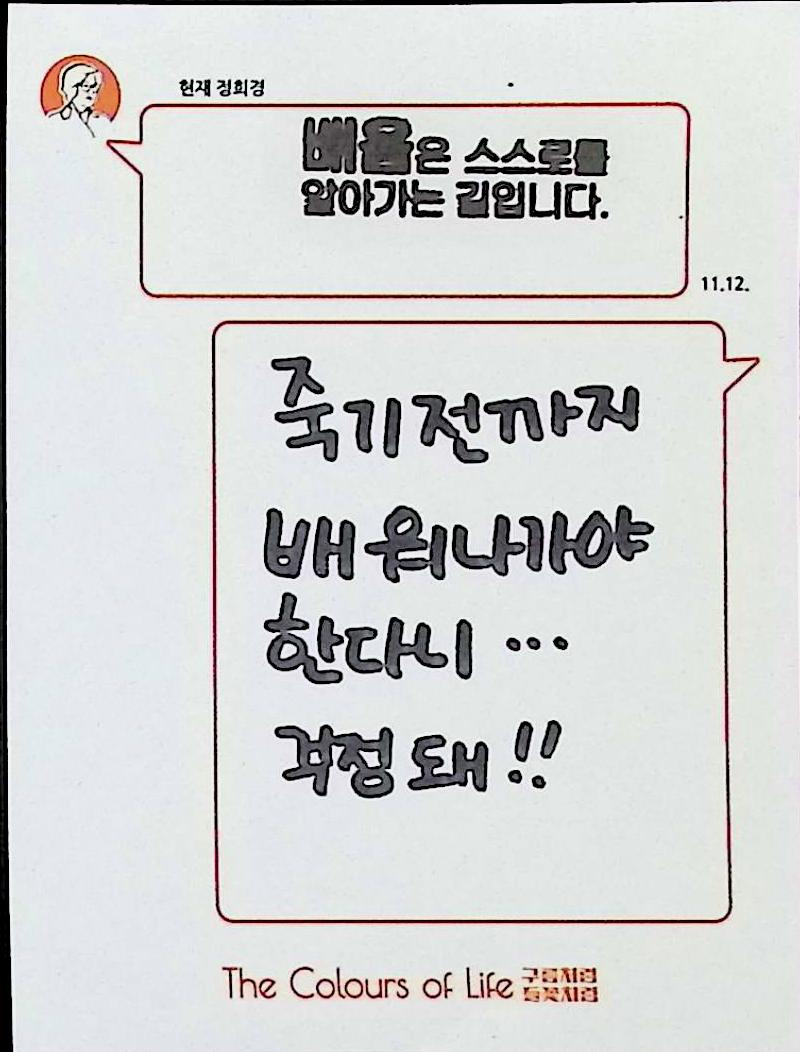 현재 정희경
배움은 스스로를
알아가는 길입니다.
11.12.
죽기전까지
배워나가야
한다니...
걱정돼!!
The Colours of Life 구름처럼
들꽃처럼